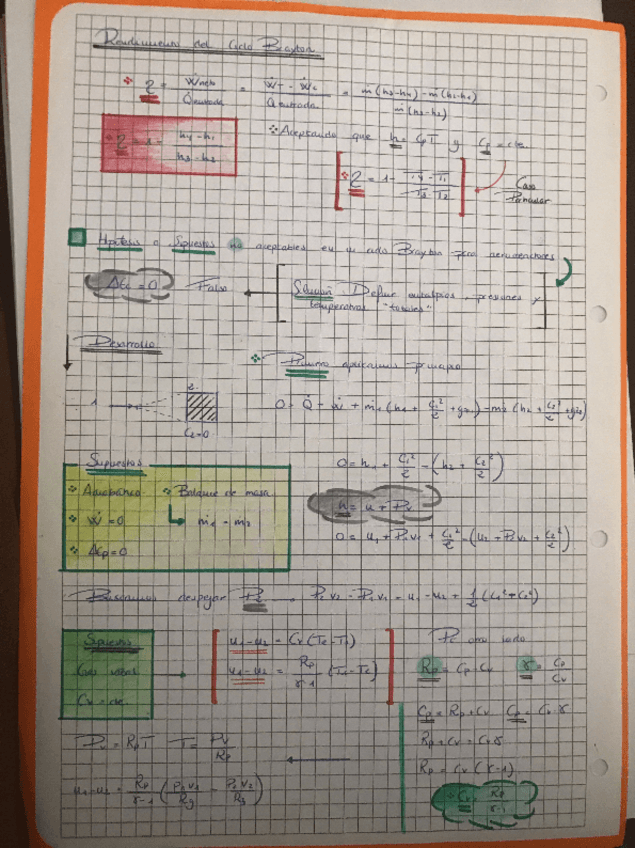 Rendimiento del Ciclo Brayton
η = Ẇneto / Q̇entrada = (Ẇt - Ẇc) / Q̇entrada = (ṁ(h3-h4) - ṁ(h2-h1)) / ṁ(h3-h2)
η = 1 - (h4-h1) / (h3-h2)
Aceptando que h = CpT y Cp = cte.
η = 1 - (T4-T1) / (T3-T2)
Caso Particular
Hipótesis o Supuestos no aceptables en un ciclo Brayton para aerurreactores
ΔEc = 0 Falso
Solución: Definir entalpías, presiones y
temperaturas "totales"
Desarrollo
Primero aplicamos principio
1 2
C2=0
0 = Q̇ - Ẇ + ṁ1 (h1 + C1²/2 + gz1) - ṁ2 (h2 + C2²/2 + gz2)
Supuestos
Adiabático
Balance de masa
Ẇ = 0
ṁ1 = ṁ2
ΔEp = 0
0 = h1 + C1²/2 - (h2 + C2²/2)
h = u + Pv
0 = u1 + P1v1 + C1²/2 - (u2 + P2v2 + C2²/2)
Buscamos despejar P2 P2v2 - P1v1 = u1 - u2 + 1/2 (C1²+C2²)
Supuestos
Gas ideal
Cv = cte.
u1-u2 = Cv (T2-T1)
u1-u2 = Rp/(γ-1) (T1-T2)
Por otro lado
Rp = Cp - Cv γ = Cp/Cv
Cp = Rp + Cv Cp = Cv·γ
Rp + Cv = Cvγ
Rp = Cv (γ-1)
Cv = Rp/(γ-1)
Pv = RpT T = Pv/Rp
u1-u2 = Rp/(γ-1) (P1v1/Rg - P2v2/Rg)